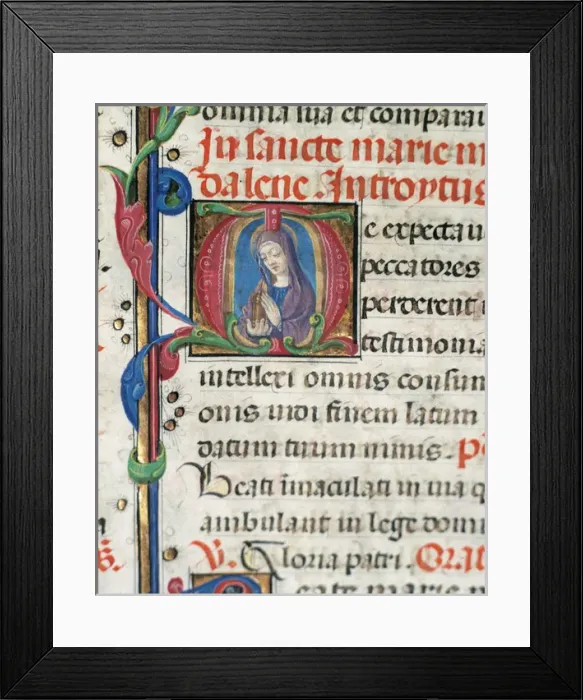 omnia tua et comparaui
In sancte marie m
dalene Introytus
e expectau
peccatores
perderent
testimonia
intellexi omnis consum
onis uidi finem latum
datum tuum nimis. p
Beati imaculati in uia q
ambulant in lege domi
V. Gloria patri. Orat
eate marie m